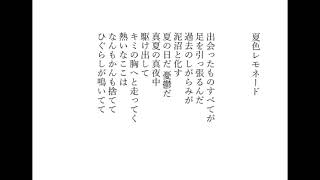 夏色レモネード
出会ったものすべてが
足を引っ張るんだ
過去のしがらみが
泥沼と化す
夏の日だ 憂鬱だ
真夏の真夜中
駆け出して
キミの胸へと走ってく
熱いなここは
なんもかんも捨てて
ひぐらしが鳴いてて